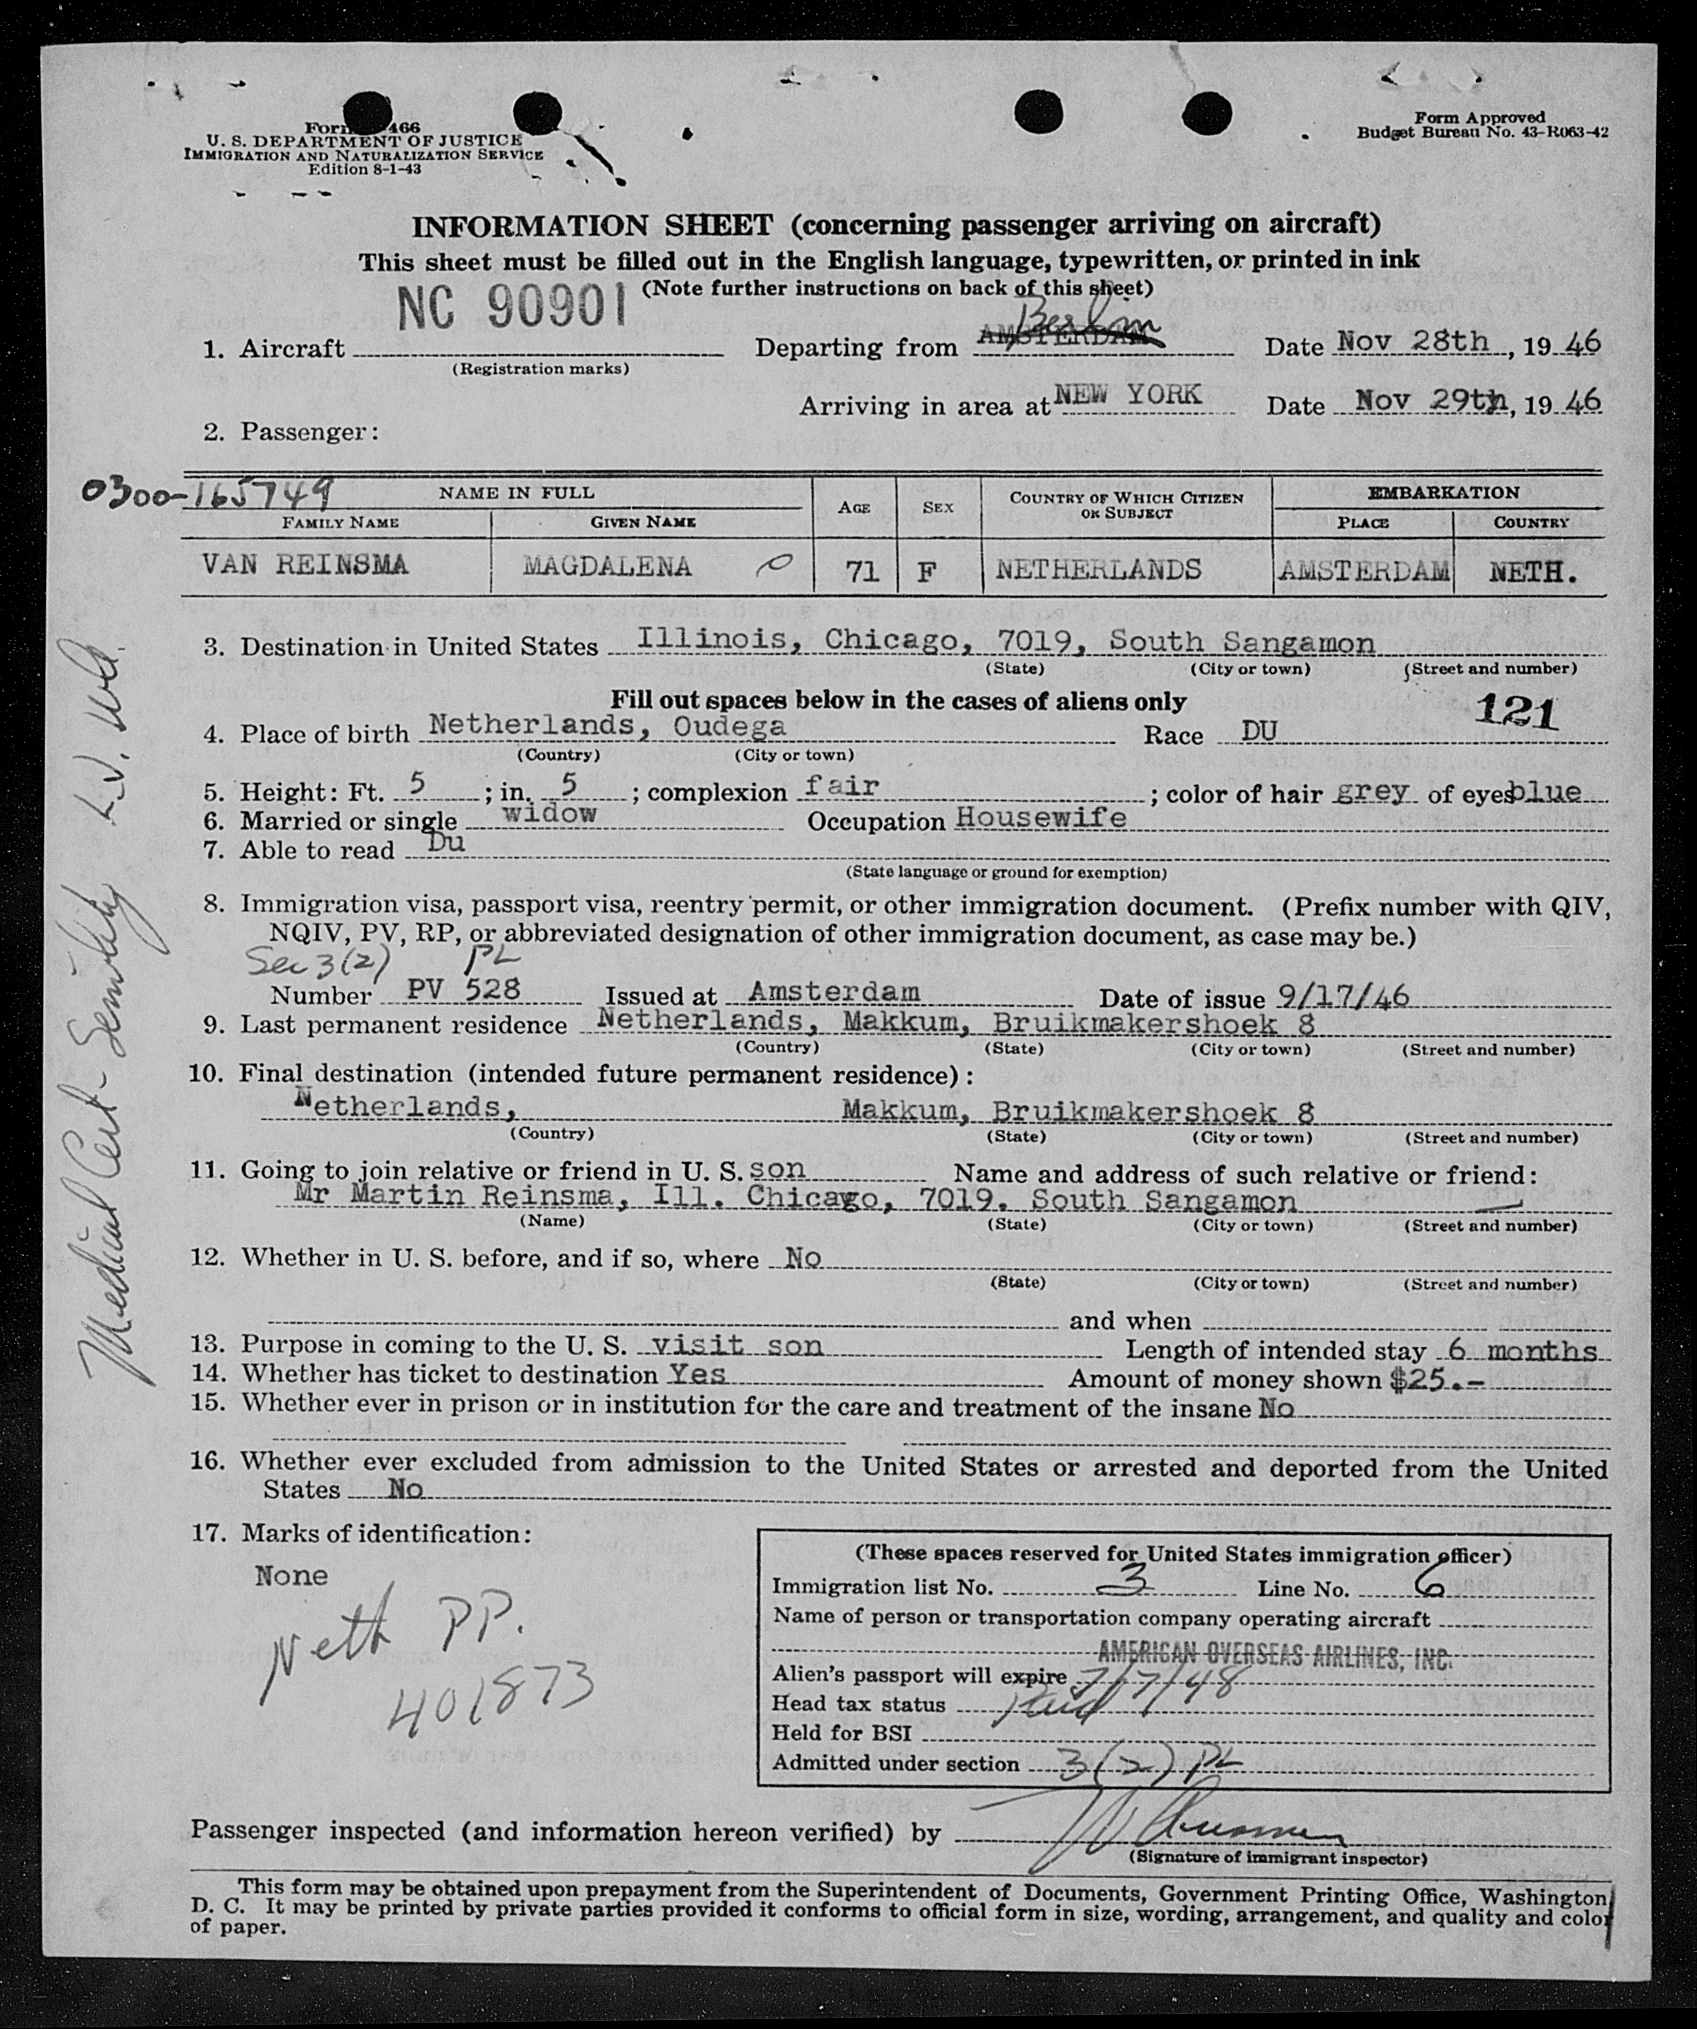 Form 466
U. S. DEPARTMENT OF JUSTICE
IMMIGRATION AND NATURALIZATION SERVICE
Edition 8-1-43
Form Approved
Budget Bureau No. 43-R063-42
INFORMATION SHEET (concerning passenger arriving on aircraft)
This sheet must be filled out in the English language, typewritten, or printed in ink
(Note further instructions on back of this sheet)
NC 90901
Berlin
1. Aircraft Departing from AMSTERDAM Date Nov 28th, 19 46
(Registration marks)
Arriving in area at NEW YORK Date Nov 29th, 19 46
2. Passenger:
0300-165749
NAME IN FULL AGE SEX COUNTRY OF WHICH CITIZEN OR SUBJECT EMBARKATION
FAMILY NAME GIVEN NAME PLACE COUNTRY
VAN REINSMA MAGDALENA 0 71 F NETHERLANDS AMSTERDAM NETH.
3. Destination in United States Illinois, Chicago, 7019, South Sangamon
(State) (City or town) (Street and number)
Fill out spaces below in the cases of aliens only
121
4. Place of birth Netherlands, Oudega Race DU
(Country) (City or town)
5. Height: Ft. 5 ; in. 5 ; complexion fair ; color of hair grey of eyes blue
6. Married or single widow Occupation Housewife
7. Able to read Du
(State language or ground for exemption)
8. Immigration visa, passport visa, reentry permit, or other immigration document. (Prefix number with QIV,
NQIV, PV, RP, or abbreviated designation of other immigration document, as case may be.)
Sec 3(2) PL
Number PV 528 Issued at Amsterdam Date of issue 9/17/46
9. Last permanent residence Netherlands, Makkum, Bruikmakershoek 8
(Country) (State) (City or town) (Street and number)
10. Final destination (intended future permanent residence):
Netherlands, Makkum, Bruikmakershoek 8
(Country) (State) (City or town) (Street and number)
11. Going to join relative or friend in U. S. son Name and address of such relative or friend:
Mr Martin Reinsma, Ill. Chicago, 7019. South Sangamon
(Name) (State) (City or town) (Street and number)
12. Whether in U. S. before, and if so, where No
(State) (City or town) (Street and number)
and when
13. Purpose in coming to the U. S. visit son Length of intended stay 6 months
14. Whether has ticket to destination Yes Amount of money shown $25.-
15. Whether ever in prison or in institution for the care and treatment of the insane No
16. Whether ever excluded from admission to the United States or arrested and deported from the United
States No
17. Marks of identification:
None
Neth PP.
401873
(These spaces reserved for United States immigration officer)
Immigration list No. 3 Line No. 6
Name of person or transportation company operating aircraft
AMERICAN OVERSEAS AIRLINES, INC.
Alien's passport will expire 7/7/48
Head tax status Paid
Held for BSI
Admitted under section 3(2) PL
Passenger inspected (and information hereon verified) by
(Signature of immigrant inspector)
This form may be obtained upon prepayment from the Superintendent of Documents, Government Printing Office, Washington
D. C. It may be printed by private parties provided it conforms to official form in size, wording, arrangement, and quality and color
of paper.
Medical Cert- Senility